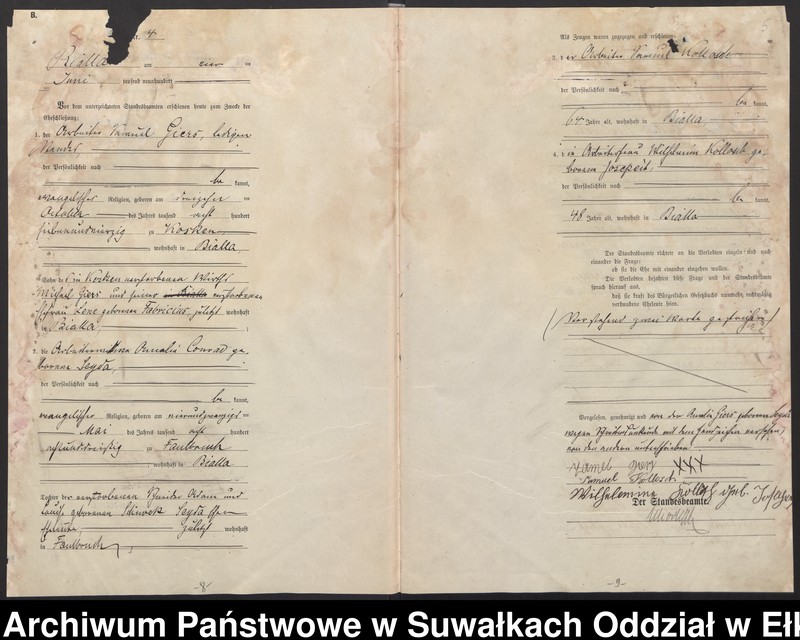 B.
Nr. 4
Bialla am vier ten
Juni tausend neunhundert
Vor dem unterzeichneten Standesbeamten erschienen heute zum Zwecke der
Eheschließung:
1. der Arbeiter Samuel Giers, ledigen
Standes,
der Persönlichkeit nach
be kannt,
evangelischer Religion, geboren am
October des Jahres tausend acht hundert
siebenundvierzig zu Kosken
wohnhaft in Bialla
Sohn des in Kosken verstorbenen Wirths
Michael Giers und seiner verstorbenen
Ehefrau Lene geborenen Fabricius, zuletzt wohnhaft
in Bialla
2. die Amalie Conrad ge-
borene Seyda,
der Persönlichkeit nach
be kannt,
evangelischer Religion, geboren am vierundzwanzigsten
Mai des Jahres tausend acht hundert
achtunddreißig zu Faulbruch
wohnhaft in Bialla
Tochter der verstorbenen Adam und
geborenen Seyda
zuletzt wohnhaft
in Faulbruch
-8-
Als Zeugen waren zugezogen und erschienen:
3. der Arbeiter Samuel
der Persönlichkeit nach
be kannt,
64 Jahre alt, wohnhaft in Bialla
4. die Arbeiterfrau Wilhelmine Kollosch ge-
borene Josepeit,
der Persönlichkeit nach
be kannt,
48 Jahre alt, wohnhaft in Bialla
Der Standesbeamte richtete an die Verlobten einzeln und nach
einander die Frage:
ob sie die Ehe mit einander eingehen wollen.
Die Verlobten bejahten diese Frage und der Standesbeamte
sprach hierauf aus,
daß sie kraft des Bürgerlichen Gesetzbuchs nunmehr rechtmäßig
verbundene Eheleute seien.
(Vorstehend zwei Worte gestrichen)
Vorgelesen, genehmigt und von der Amalie Giers geborenen Seyda
wegen Schreibensunkunde mit dem Handzeichen versehen,
von den anderen unterschrieben
XXX
Samuel Kollosch
Wilhelmine Kollosch geb.
Der Standesbeamte.
-9-
Archiwum Państwowe w Suwałkach Oddział w Eł